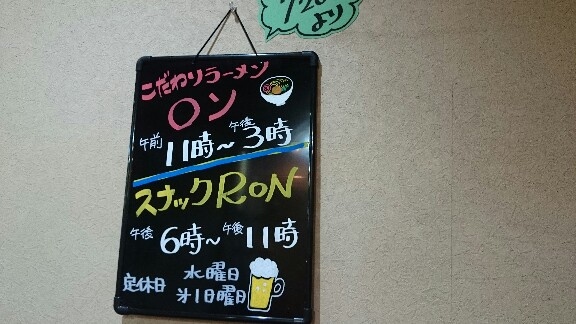 7/20
より
こだわりラーメン
〇ン
午前11時～午後3時
スナックRON
午後6時～午後11時
定休日 水曜日
オ1日曜日